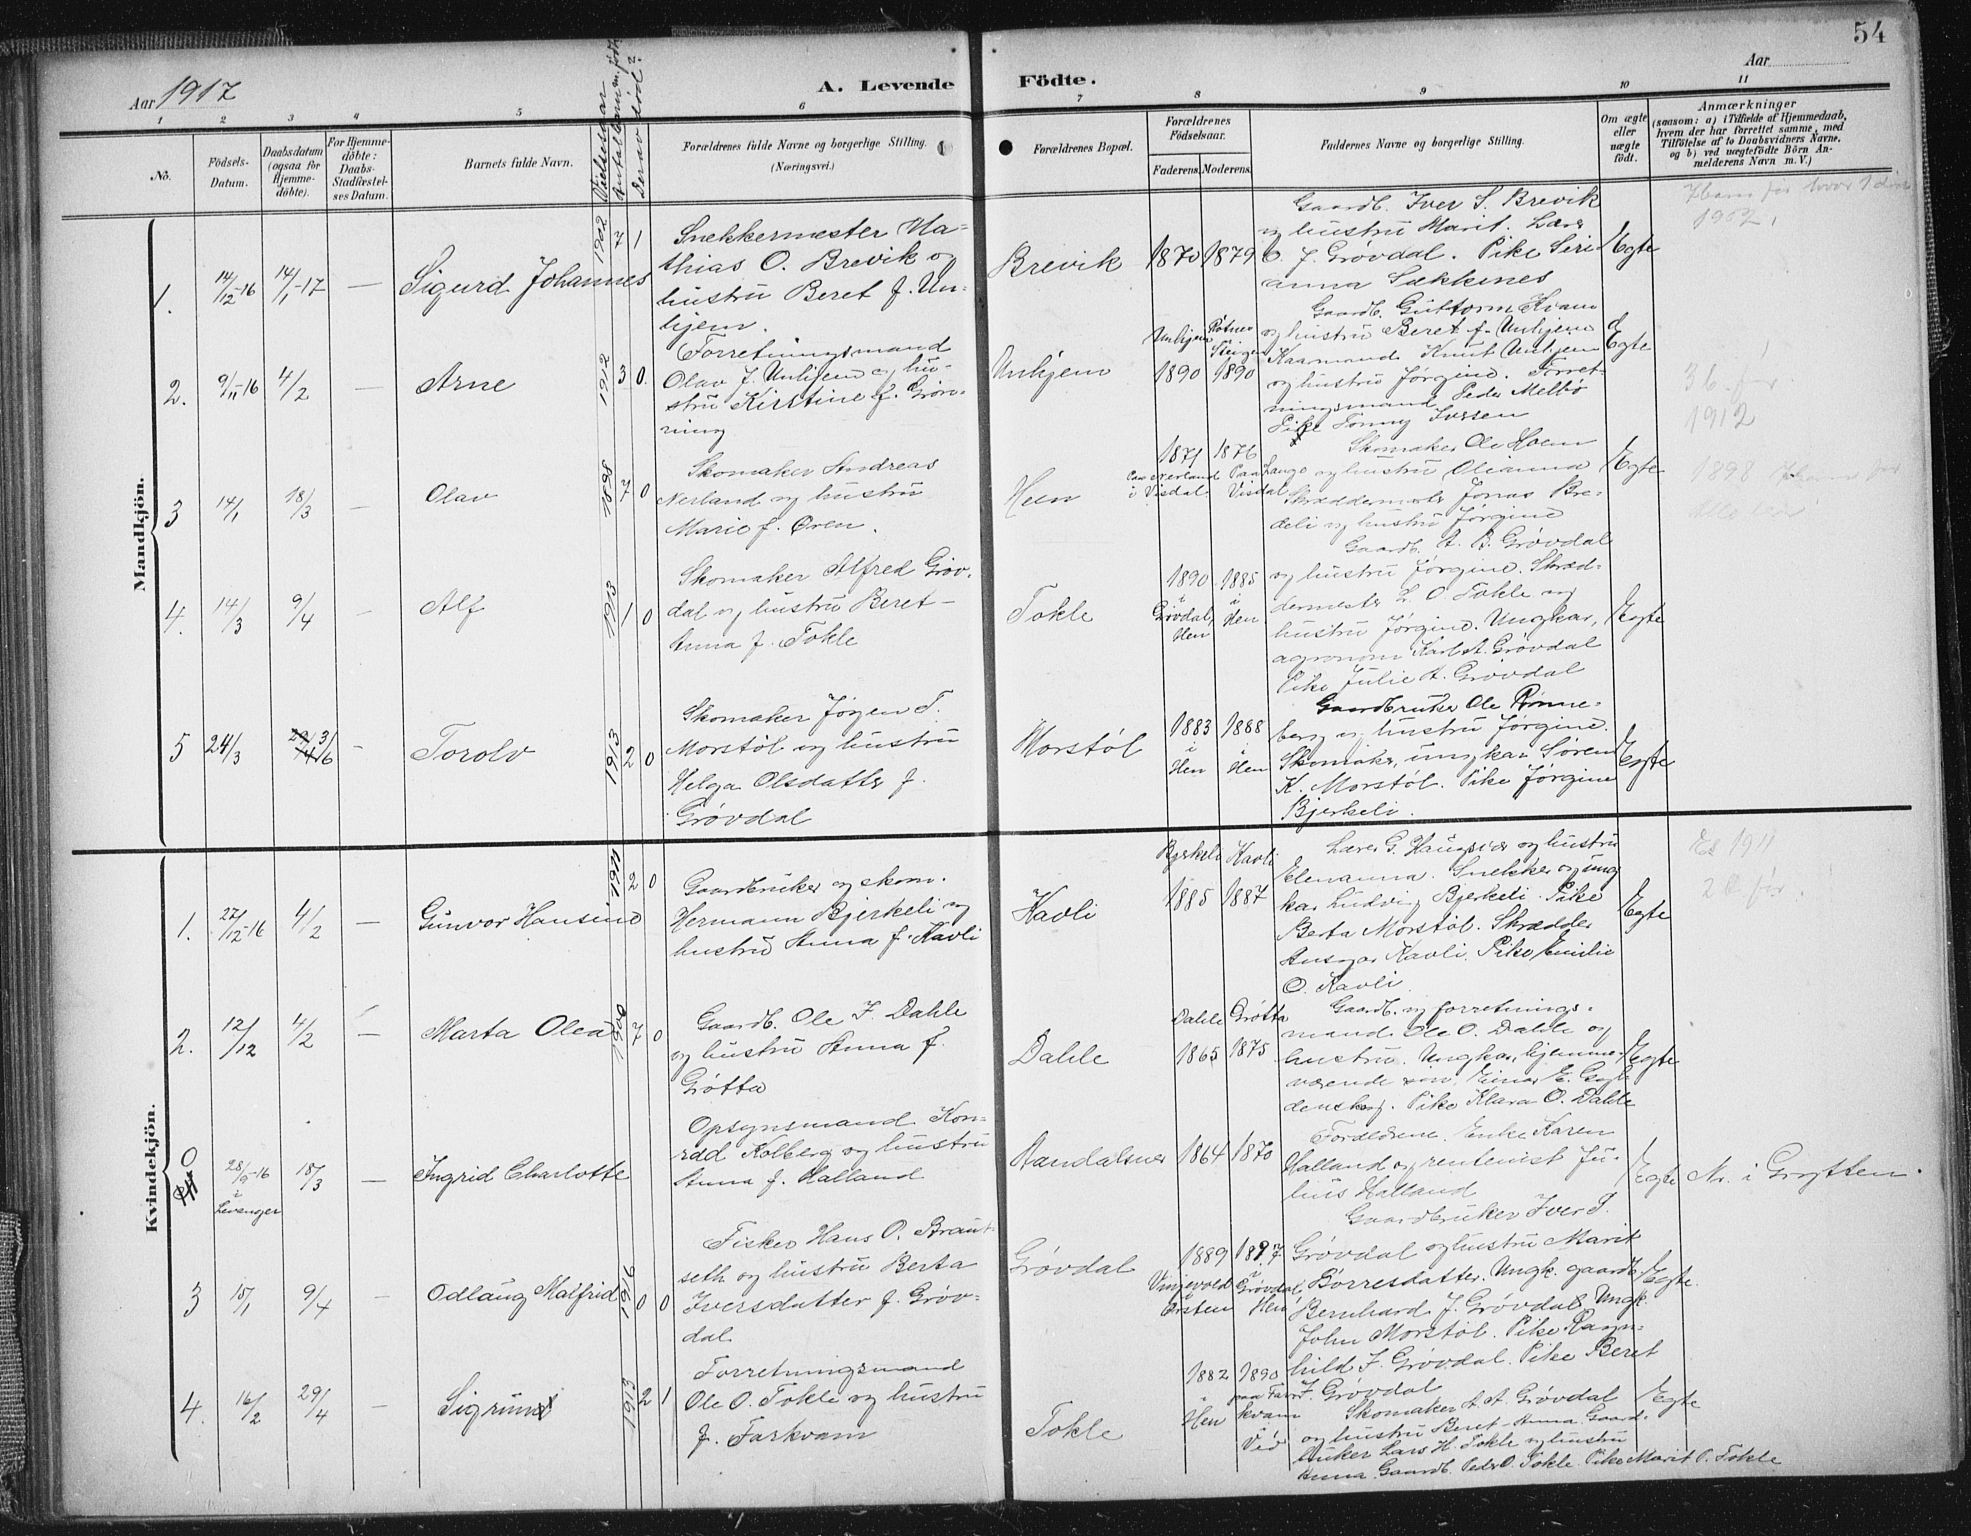 54
Aar 1917
A. Levende Födte.
Aar
1 2 3 4 5 6 7 8 9 10 11
No.
Födsels-Datum.
Daabsdatum (ogsaa for Hjemmedöbte).
For Hjemmedöbte: Daabs-Stadfæstelses Datum.
Barnets fulde Navn.
Vielsesaar
Antal barn m. født
Derav død?
Forældrenes fulde Navne og borgerlige Stilling.
(Næringsvei.)
Forældrenes Bopæl.
Forældrenes Födselsaar.
Faderens. Moderens.
Faddernes Navne og borgerlige Stilling.
Om ægte eller uægte födt.
Anmærkninger
(saasom: a) i Tilfælde af Hjemmedaab,
hvem der har forrettet samme, med
Tilföielse af to Daabsvidners Navne,
og b) ved uægtefödte Börn Anmelderens Navn m. V.)
Mandkjön.
1. 14/12-16 14/1-17 — Sigurd Johannes 1902 7 1
Snekkermester Ma-
thias O. Brevik og
hustru Beret f. Un-
hjem.
Brevik 1870 1879
Gaardb. Iver S. Brevik
og hustru Marit. Lærer
O. J. Grøvdal. Pike Seri-
anna Sækkenes
Egte
1902
2. 9/11-16 4/2 — Arne 1912 3 0.
Forretningsmand
Olav J. Unhjem og hu-
stru Kirstine f. Grøn-
ning
Unhjem
Unhjem
1890 1890
Gaardb. Guttorm Kvam
og hustru Beret f. Unhjem
Kaarmand Knut Unhjem
og hustru Jørgine. Forret-
ningsmand Peder Melbø
Pike Tonny Iversen
Egte
3 b. før
1912
3 14/1 18/3 — Olav 1898 7 0
Skomaker Andreas
Nerland og hustru
Marie f. Øren.
Hen
1871 1876
Paa Nerland i Visdal. Paa Lange Visdal
Skomaker Ole Hoem
og hustru Olianna
Skræddermstr Jonas Bre-
deli og hustru Jørgine
Egte
1898
4. 14/3 9/4 — Alf 1913 1 0
Skomaker Alfred Grøv-
dal og hustru Beret-
Anna f. Tokle
Tokle
1890 1885
i Grøvdal, Hen i Hen
Gaardb. A. B. Grøvdal
og hustru Jørgine. Skræd-
dermester L. O. Tokle og
hustru Jørgine. Ungkar,
agronom Karl A. Grøvdal
Pike Julie A. Grøvdal
Egte
5 24/3 29/4 3/6 — Torolv 1913 2 0
Skomaker Jørgen T.
Morstøl og hustru
Helga Olsdatter f.
Grøvdal
Morstøl
1883 1888
i Hen i Hen
Gaardbruker Ole Rønne-
berg og hustru Jørgine.
Skomaker, ungkar Søren
K. Morstøl. Pike Jørgine
Bjerkeli.
Egte
Kvindekjön.
1. 27/12-16 4/2 — Gunvor Hansine 1911 2 0
Gaardbruker og skom.
Hermann Bjerkeli og
hustru Anna f. Kavli
Kavli
Bjerkeli Kavli
1885 1887
Lærer G. og hustru
Elenanna. Snekker og ung-
kar Ludvig Bjerkeli. Pike
Berta Morstøl. Skrædder
Ansgar Kavli. Pike Emilie
O. Kavli.
Egte
1911
2 før.
2. 12/12 4/2 — Marta Olea 1900 7 0
Gaardb. Ole J. Dahle
og hustru Anna f.
Grøtta
Dahle
Dahle Grøtta
1865 1875
Gaardb. og forretnings-
mand Ole O. Dahle og
hustru. Ungkar, hjemme-
værende søn, Einar E. Gyl-
denskog. Pike Klara O. Dahle
Egte
0 28/9-16 i Levanger 18/3 — Ingrid Charlotte
Opsynsmand Kon-
rad Kolberg og hustru
Anna f. Halland
Aandalsnes 1864 1870
Forældrene. Enke Karen
Halland og rentenist Ju-
lius Halland
Egte Nr. i Grytten.
3 18/1 9/4 — Odlaug Malfrid 1916 0 0
Fisker Hans O. Braut-
seth og hustru Berta
Iversdatter f. Grøv-
dal
Grøvdal
1889 1897
Vinjevold i Ørsten i Grøvdal, Hen
Gaardbruker Iver J.
Grøvdal og hustru Marit
Børresdatter. Ungk. gaardb.
Bernhard J. Grøvdal. Ungk.
John Morstøl. Pike Ragn-
hild J. Grøvdal. Pike Beret
J. Grøvdal
Egte
4. 16/2 29/4 — Sigrun 1913 2 1
Forretningsmand
Ole O. Tokle og hustru
f. Farkvam
Tokle
1882 1890
i Hen paa Farkvam Vid
Skomaker A. A. Grøvdal
og hustru Beret-Anna. Gaard-
bruker Lars H. Tokle og hustru
Anna. Gaardb. Peder O. Tokle Pike Marit O. Tokle
Egte